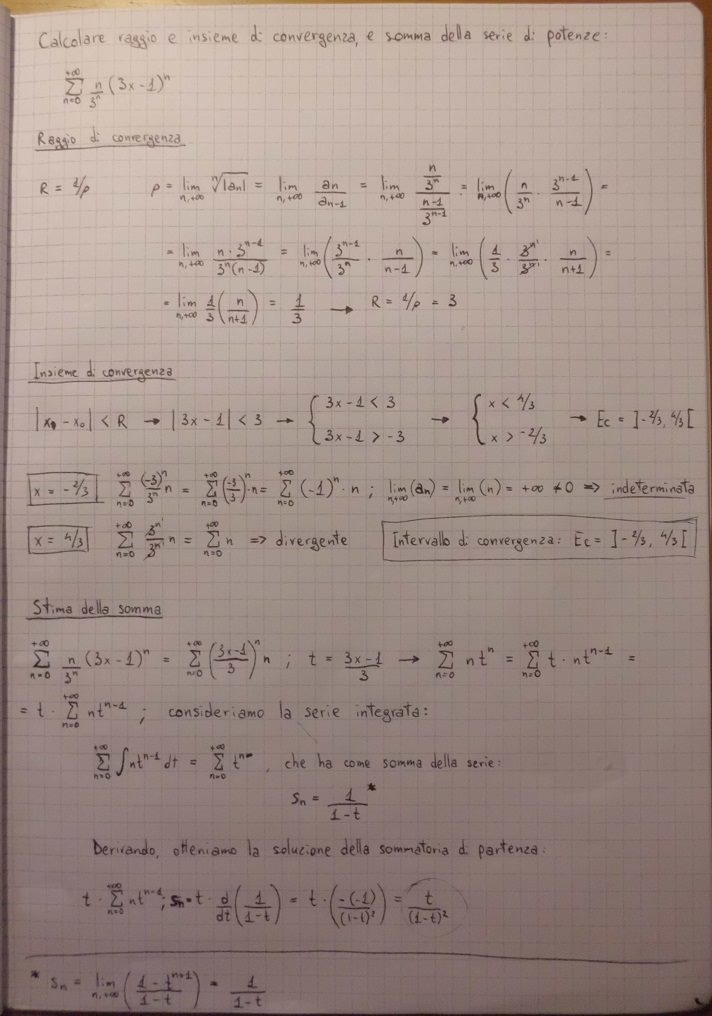 Calcolare raggio e insieme di convergenza, e somma della serie di potenze:
∑_{n=0}^{+∞} n/3ⁿ (3x-1)ⁿ
Raggio di convergenza
R = 1/ρ ρ = lim_{n,+∞} ⁿ√|an| = lim_{n,+∞} an/an-1 = lim_{n,+∞} (n/3ⁿ)/((n-1)/3ⁿ⁻¹) = lim_{n,+∞} (n/3ⁿ · 3ⁿ⁻¹/(n-1)) =
= lim_{n,+∞} n·3ⁿ⁻¹/(3ⁿ(n-1)) = lim_{n,+∞} (3ⁿ⁻¹/3ⁿ · n/(n-1)) = lim_{n,+∞} (1/3 · 3ⁿ/3ⁿ · n/(n+1)) =
= lim_{n,+∞} 1/3 (n/(n+1)) = 1/3 → R = 1/ρ = 3
Insieme di convergenza
|x - x₀| < R → |3x-1| < 3 → { 3x-1 < 3 ; 3x-1 > -3 → { x < 4/3 ; x > -2/3 → Ec = ]-2/3, 4/3[
x = -2/3 ∑_{n=0}^{+∞} (-3)ⁿ/3ⁿ n = ∑_{n=0}^{+∞} (-3/3)ⁿ·n = ∑_{n=0}^{+∞} (-1)ⁿ·n ; lim_{n,+∞}(an) = lim_{n,+∞}(n) = +∞ ≠ 0 => indeterminata
x = 4/3 ∑_{n=0}^{+∞} 3ⁿ/3ⁿ n = ∑_{n=0}^{+∞} n => divergente Intervallo di convergenza: Ec = ]-2/3, 4/3[
Stima della somma
∑_{n=0}^{+∞} n/3ⁿ (3x-1)ⁿ = ∑_{n=0}^{+∞} ((3x-1)/3)ⁿ n ; t = (3x-1)/3 → ∑_{n=0}^{+∞} ntⁿ = ∑_{n=0}^{+∞} t · ntⁿ⁻¹ =
= t · ∑_{n=0}^{+∞} ntⁿ⁻¹ ; consideriamo la serie integrata:
∑_{n=0}^{+∞} ∫ntⁿ⁻¹ dt = ∑_{n=0}^{+∞} tⁿ , che ha come somma della serie:
Sn = 1/(1-t) *
Derivando, otteniamo la soluzione della sommatoria di partenza:
t · ∑_{n=0}^{+∞} ntⁿ⁻¹; Sn = t · d/dt (1/(1-t)) = t · (-(-1)/(1-t)²) = t/(1-t)²
* Sn = lim_{n,+∞} ((1-tⁿ⁺¹)/(1-t)) = 1/(1-t)